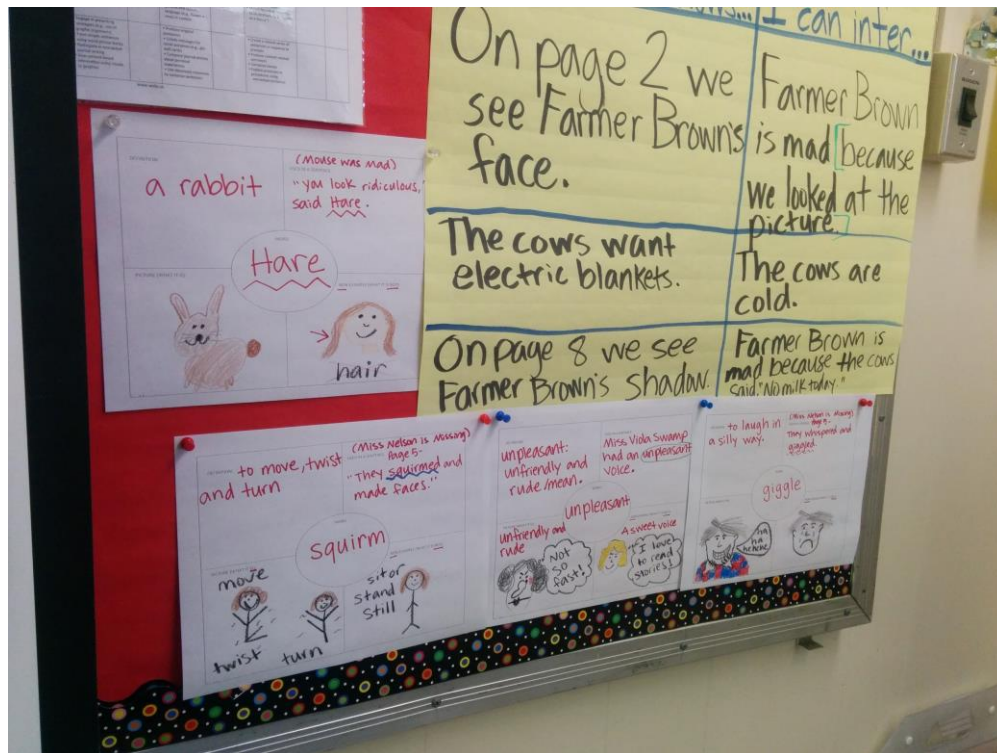 I can inter...
On page 2 we
see Farmer Brown's
face.
Farmer Brown
is mad [because
we looked at the
picture.]
The cows want
electric blankets.
The cows are
cold.
On page 8 we see
Farmer Brown's shadow.
Farmer Brown is
mad because the cows
said, "No milk today."
a rabbit
(Mouse was Mad)
"you look ridiculous,"
said Hare.
Hare
hair
to move, twist
and turn
(Miss Nelson is Missing)
Page 5-
"They squirmed and
made faces."
squirm
move
twist
turn
sit or
stand
still
unpleasant:
unfriendly and
rude/mean.
Miss Viola Swamp
had an unpleasant
voice.
unpleasant
unfriendly and
rude
Not
so
fast!
A sweet voice
"I love
to read
stories!"
to laugh in
a silly way.
(Miss Nelson is Missing)
They whispered and
giggled.
giggle
ha
ha
hehehe